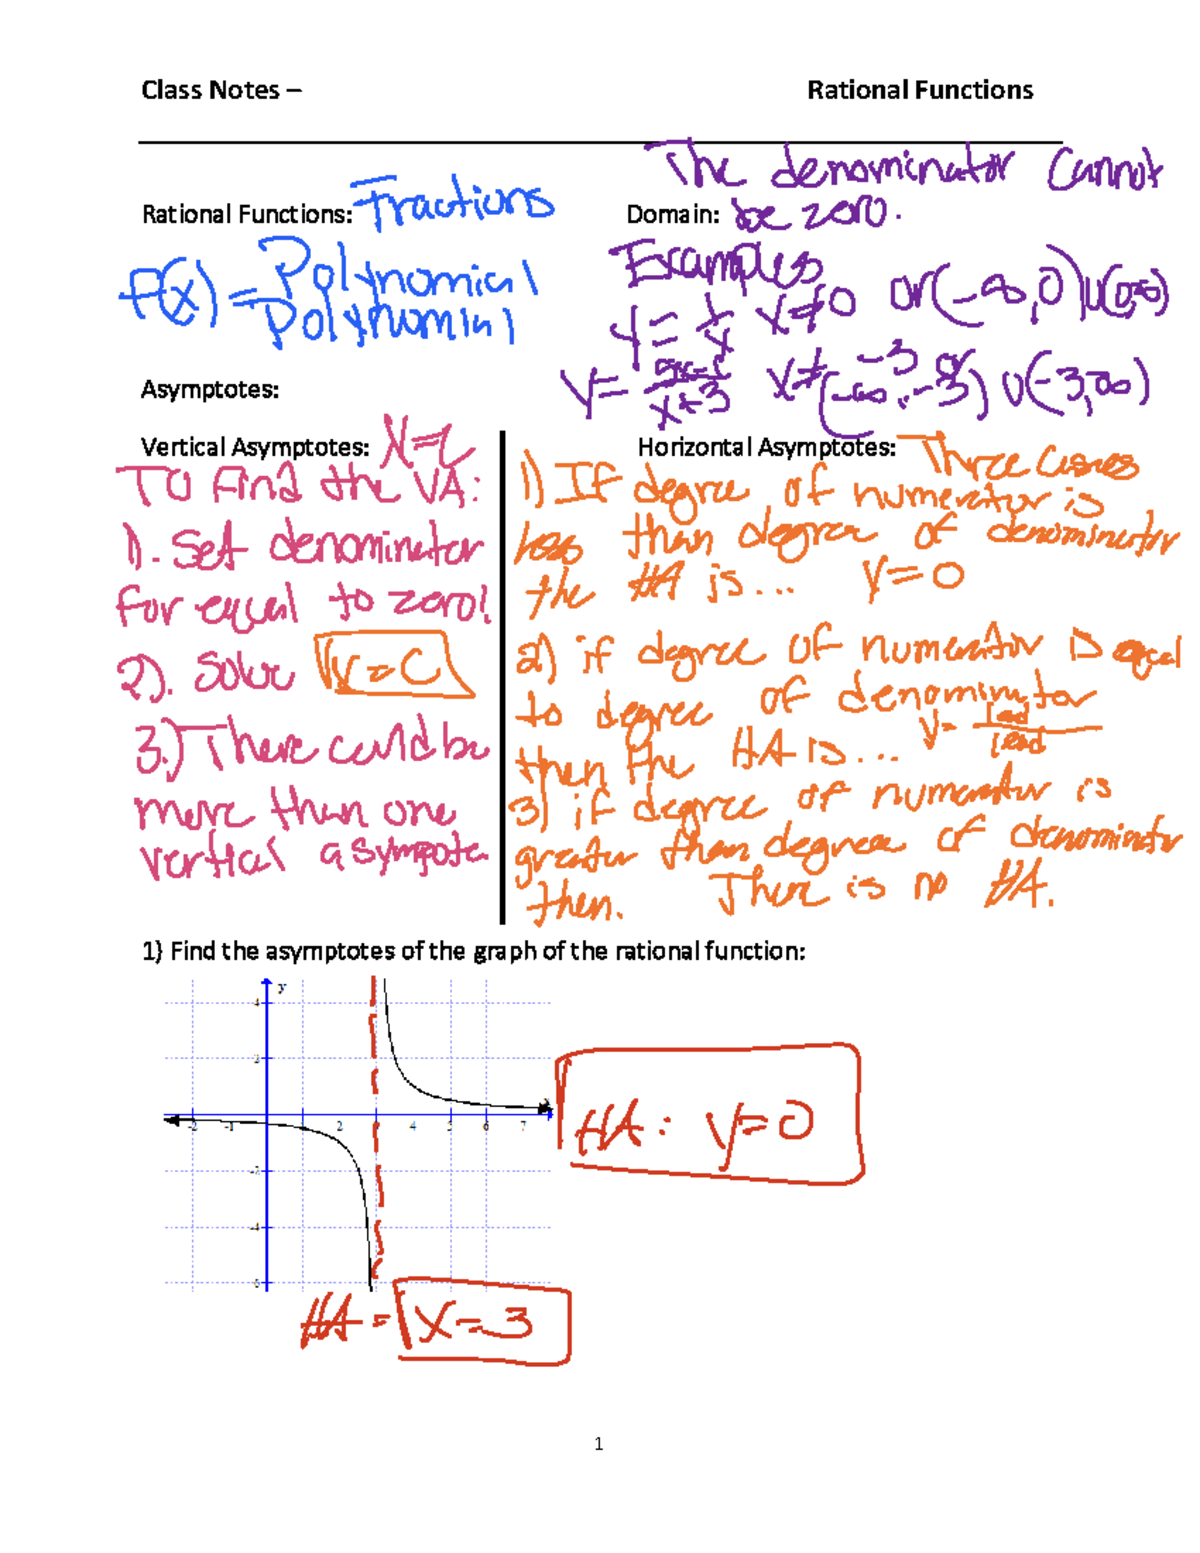 Class Notes – Rational Functions
The denominator cannot
Rational Functions: Fractions Domain: be zero.
f(x) = Polynomial
Polynomial
Examples
y = 1/x x≠0 or (-∞,0)∪(0,∞)
y = x+3 x≠ -3 or
(-∞,-3) ∪ (-3,∞)
Asymptotes:
Vertical Asymptotes:
To Find the VA:
1). Set denominator
for equal to zero!
2). Solve
3.) There could be
more than one
vertial asympote
Horizontal Asymptotes: Three Cases
1) If degree of numerator is
less than degree of denominator
the HA is... y=0
2) if degree of numerator is equal
to degree of denominator
then the HA is... y= Lead
Lead
3) if degree of numerator is
greater than degree of denominator
then. There is no HA.
1) Find the asymptotes of the graph of the rational function:
y
4
2
x
-2 -1 2 4 5 6 7
-2
-4
-6
HA: y=0
HA = x=3
1